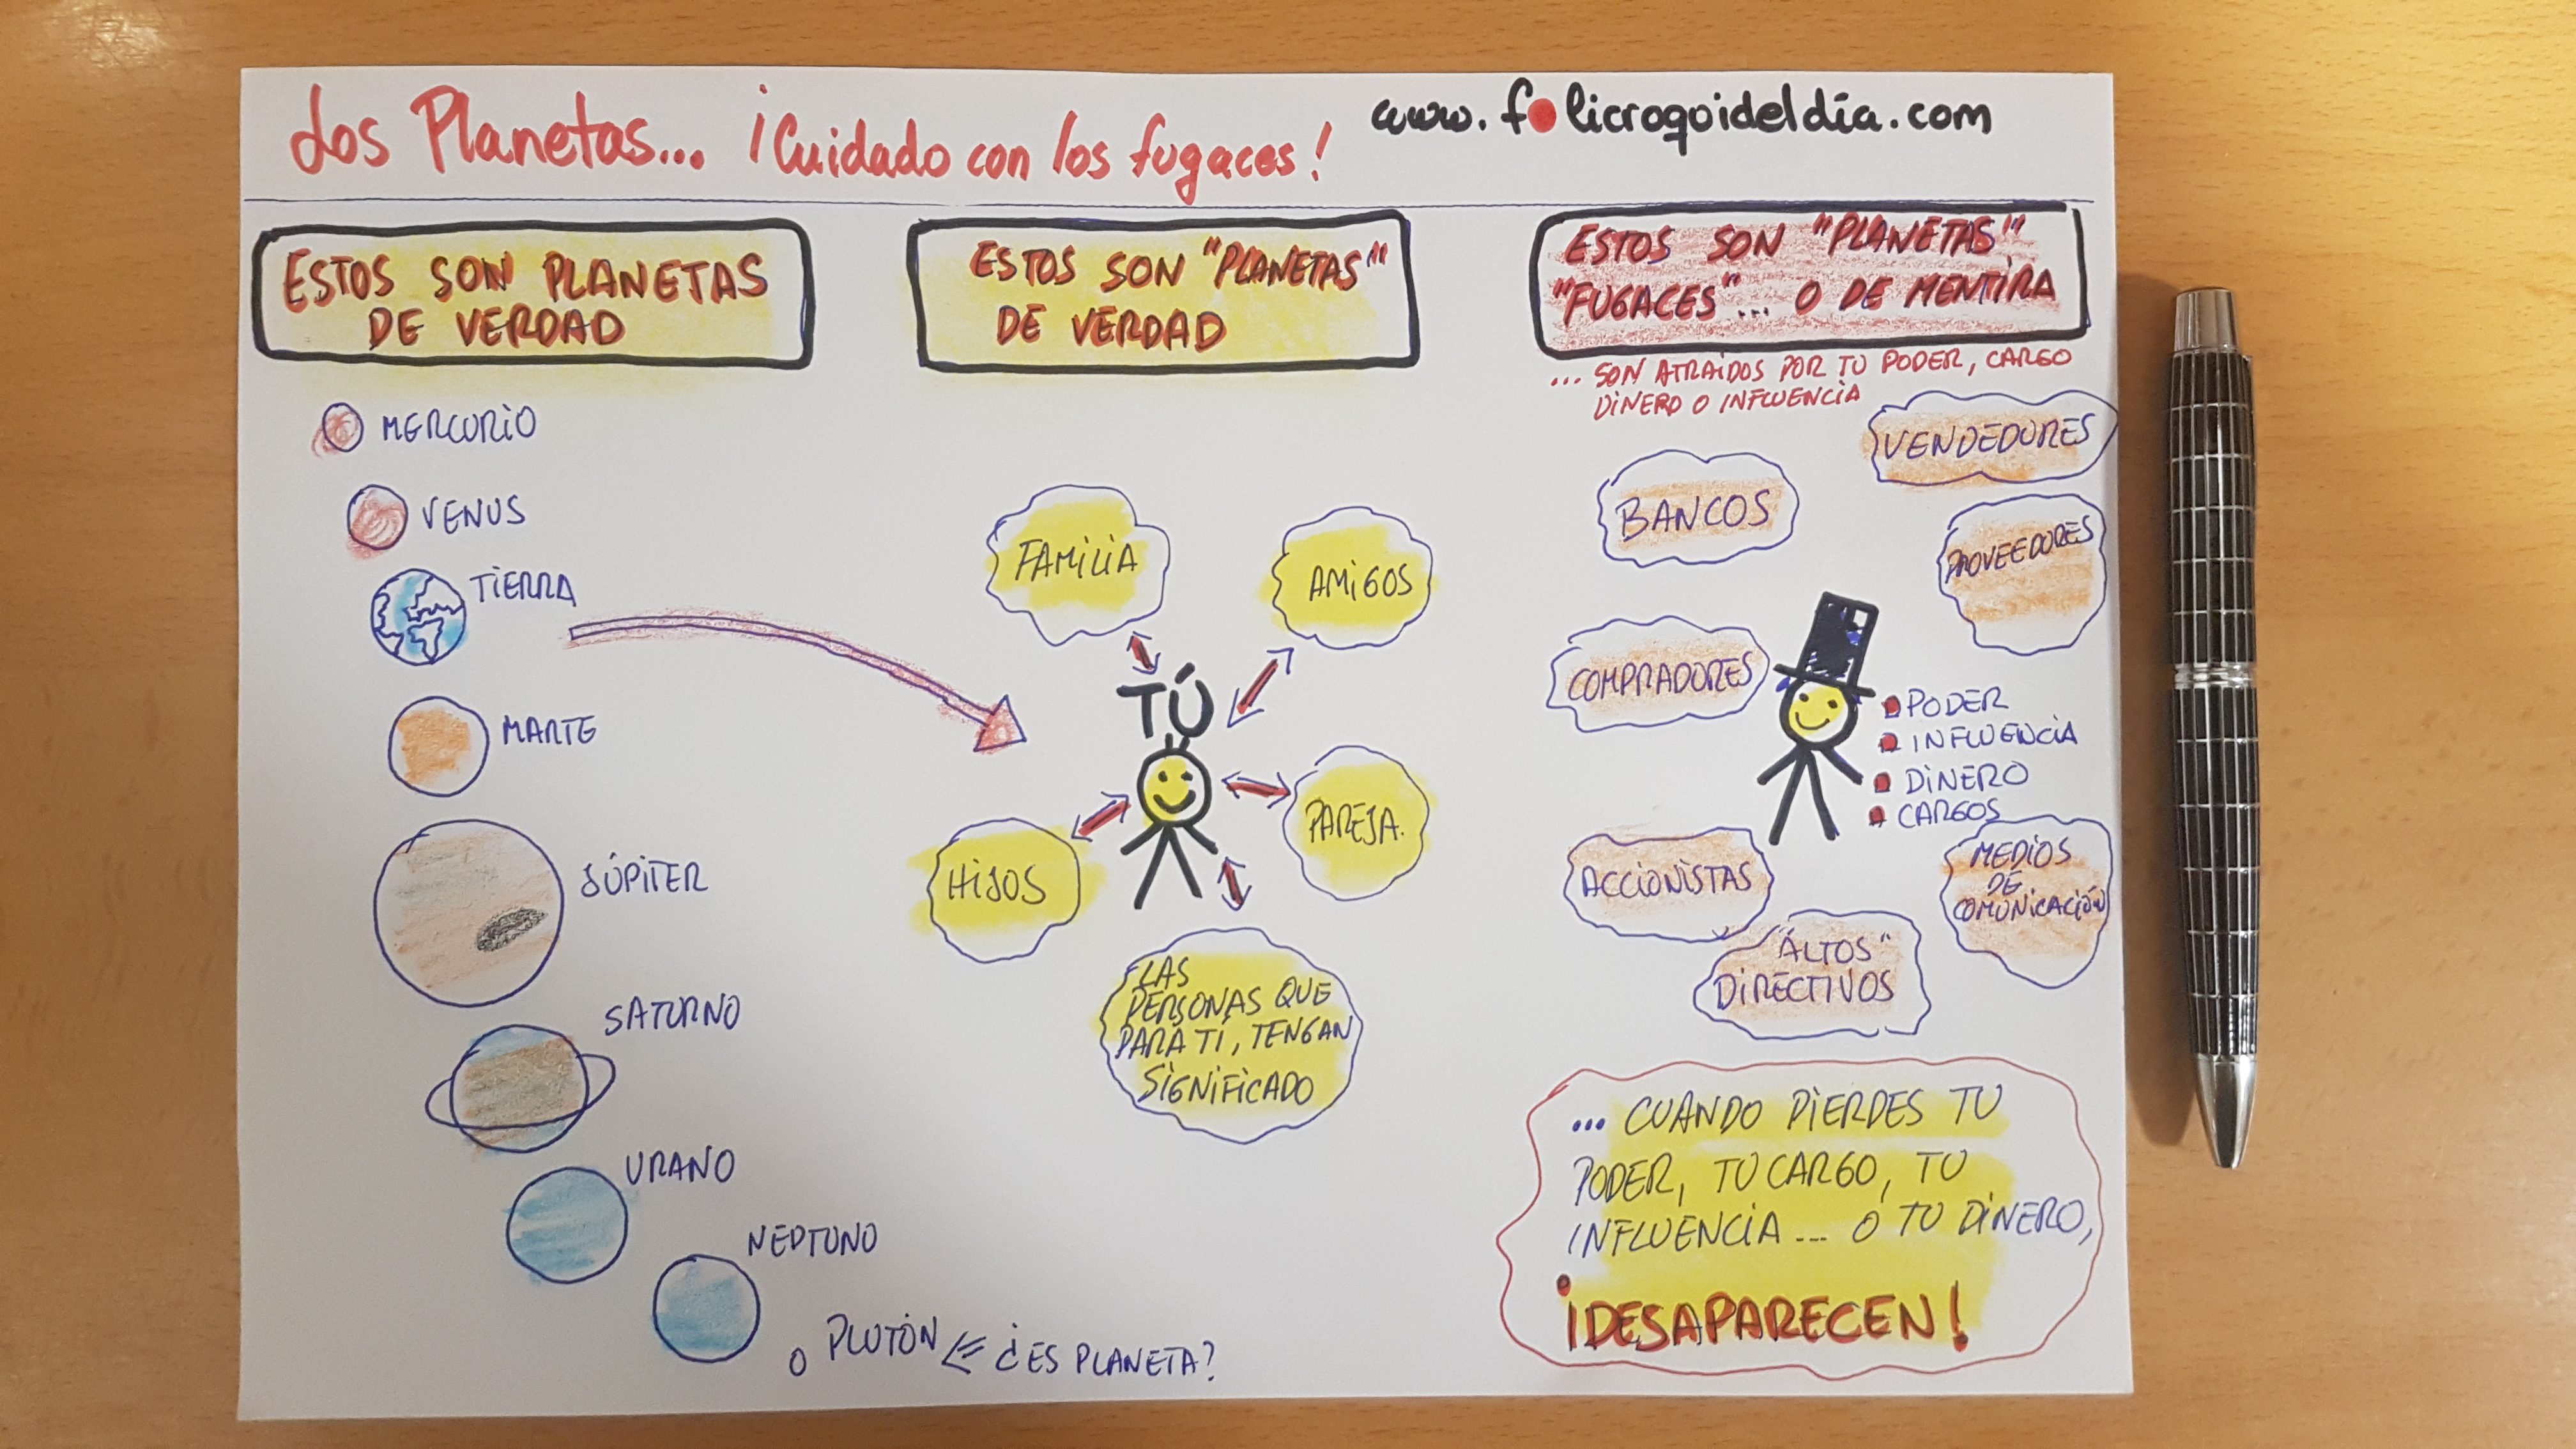 Los Planetas... ¡Cuidado con los fugaces!
www.folicroquideldía.com
ESTOS SON PLANETAS
DE VERDAD
MERCURIO
VENUS
TIERRA
MARTE
JÚPITER
SATURNO
URANO
NEPTUNO
PLUTÓN ¿ES PLANETA?
ESTOS SON "PLANETAS"
DE VERDAD
FAMILIA
AMIGOS
TÚ
PAREJA.
HIJOS
LAS
PERSONAS QUE
PARA TÍ, TENGAN
SIGNIFICADO
ESTOS SON "PLANETAS"
"FUGACES"... O DE MENTIRA
... SON ATRAIDOS POR TU PODER, CARGO
DINERO O INFLUENCIA
VENDEDORES
BANCOS
PROVEEDORES
COMPRADORES
PODER
INFLUENCIA
DINERO
CARGOS
ACCIONISTAS
MEDIOS
DE
COMUNICACIÓN
"ALTOS"
DIRECTIVOS
... CUANDO PIERDES TU
PODER, TU CARGO, TU
INFLUENCIA... O TU DINERO,
¡DESAPARECEN!